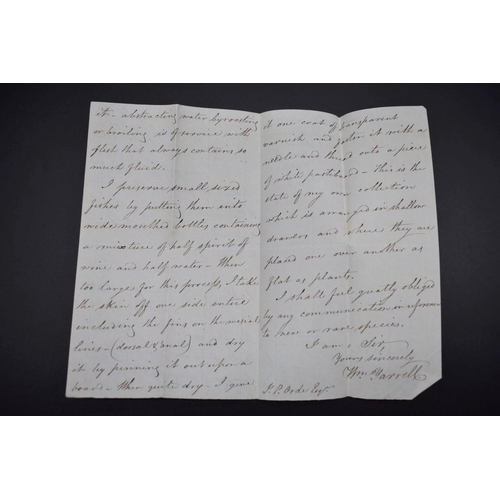 it - abstracting water by roasting
or broiling is of service with
flesh that always contains so
much fluid.
I preserve small sized
fishes by putting them into
wide mouthed bottles containing
a mixture of half spirit of
wine and half water - When
too large for this process, I take
the skin off one side entire
including the fins on the mesial
lines - (dorsal & anal) and dry
it by pinning it out upon a
board - When quite dry - I give
it one coat of transparent
varnish and fasten it with a
needle and thread onto a piece
of white pasteboard - this is the
state of my own collection
which is arranged in shallow
drawers and where they are
placed one over another as
flat as plants.
I shall feel greatly obliged
by any communication in reference
to new or rare species.
I am, Sir,
Yours sincerely
Wm Yarrell
J. P. Orde Esqr.